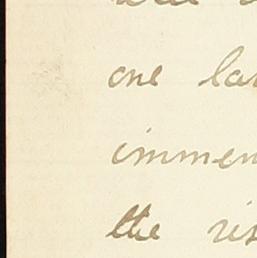 one la
immen
the ris